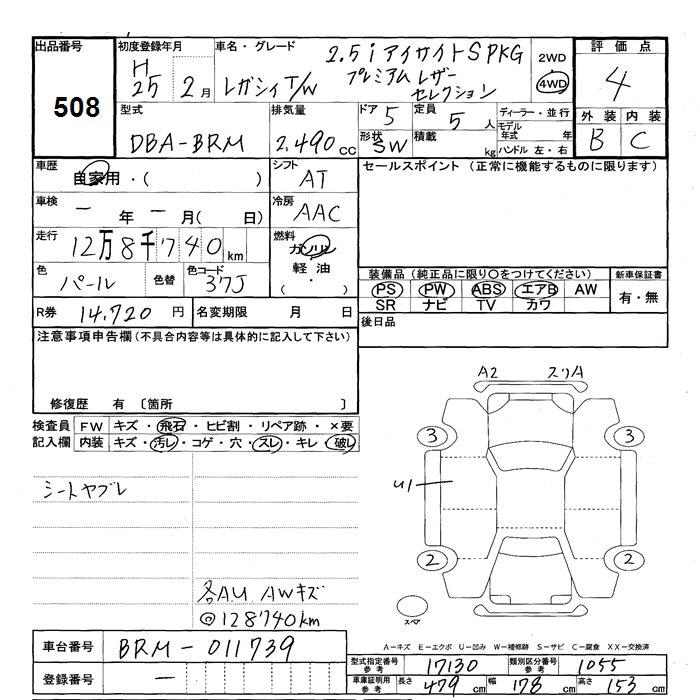 出品番号
508
初度登録年月
H
25 2月
車名・グレード
2.5i アイサイトS PKG
レガシィ T/W プレミアム レザー
セレクション
2WD
4WD
評価点
4
外装 内装
B C
型式
DBA-BRM
排気量
2.490cc
ドア 5
形状 SW
定員 5人
積載 kg
ディーラー・並行
モデル年式 年
ハンドル 左・右
車歴
自家用・( )
シフト
AT
セールスポイント (正常に機能するものに限ります)
車検
ー年ー月( 日)
冷房
AAC
走行
12万8千740km
燃料
ガソリン
軽油
( ・ )
色
パール
色替
色コード
37J
装備品 (純正品に限り〇をつけてください)
新車保証書
PS PW ABS エアB AW
SR ナビ TV カワ
有・無
R券 14,720円
名変期限 月 日
後日品
注意事項申告欄(不具合内容等は具体的に記入して下さい)
修復歴 有 〔箇所 〕
検査員記入欄
FW キズ・飛石・ヒビ割・リペア跡・×要
内装 キズ・汚レ・コゲ・穴・スレ・キレ・破レ
シートヤブレ
各AU AWキズ
@128740km
A2 スリA
3 3
U1
2 2
スペア
A－キズ E－エクボ U－凹み W－補修跡 S－サビ C－腐食 XX－交換済
車台番号 BRM-011739
登録番号 ー
型式指定番号参考 17130
類別区分番号参考 1055
車庫証明用参考 長さ 479cm 幅 178cm 高さ 153cm